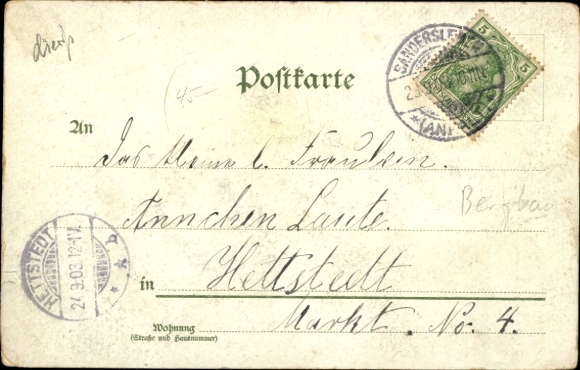 Postkarte
SANDERSLEBEN
(ANH
5 5
45
An
Das kleine l. Fräulein.
Ännchen Laute.
Bergbau
HETTSTEDT
24.9.03.12-1V.
* * b
in Hettstedt
Wohnung
(Straße und Hausnummer)
Markt. No. 4.